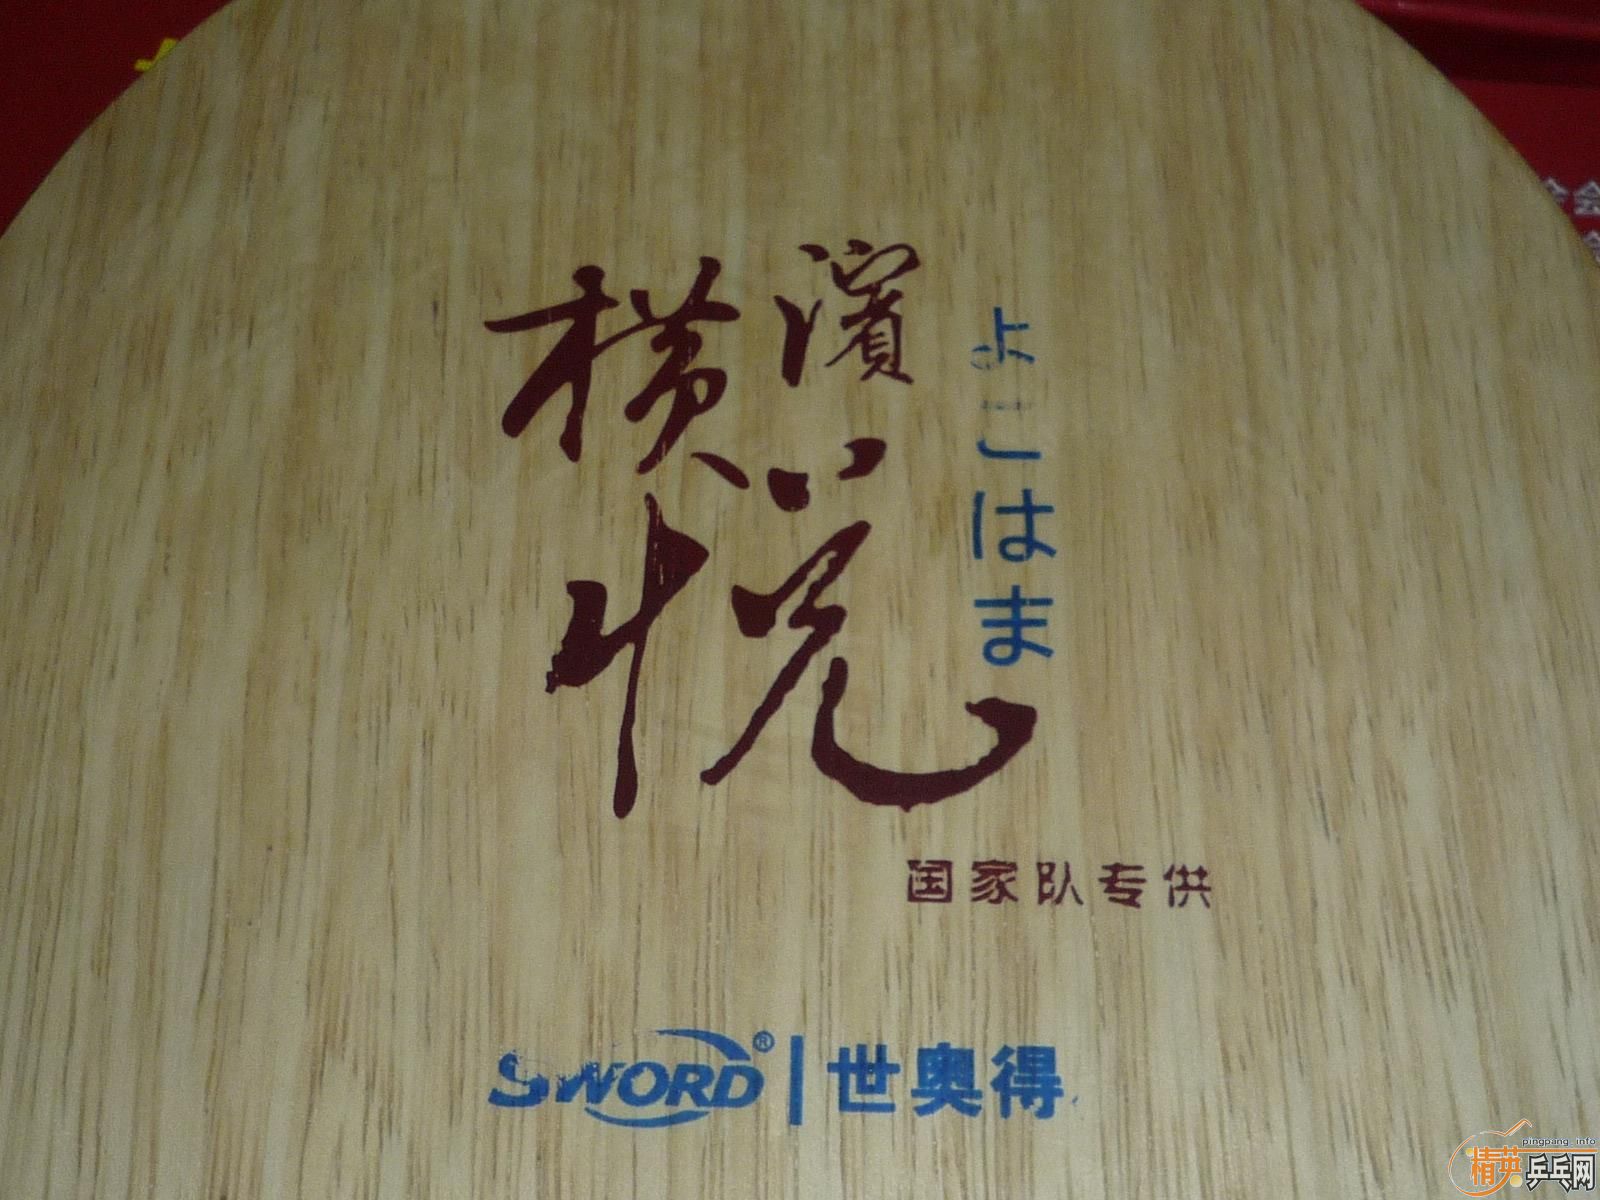 横濱
悦
よこはま
国家队专供
SWORD® | 世奥得
会
pingpang.info
精英乒乓网